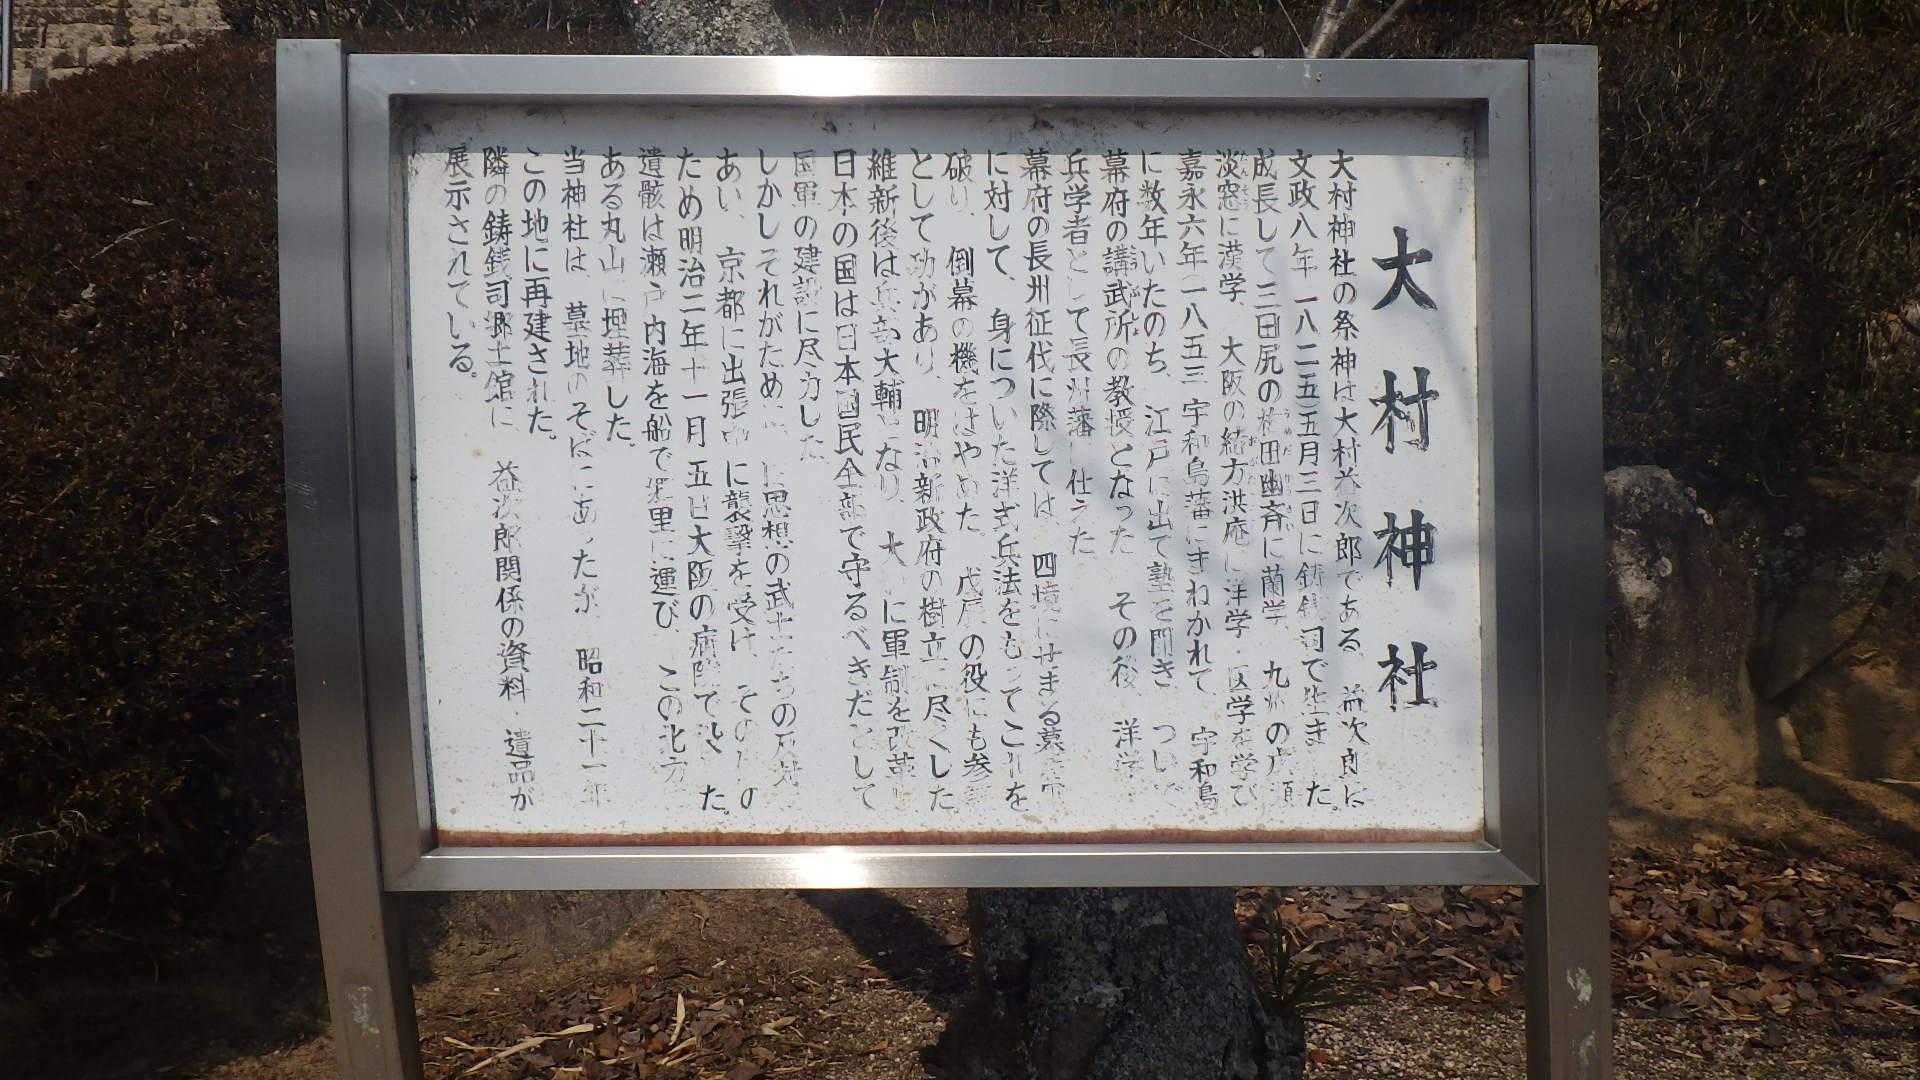 大村神社
大村神社の祭神は大村益次郎である 益次郎は
文政八年一八二五五月三日に鋳銭司で生まれた。
成長して三田尻の梅田幽斉に蘭学、九州の広瀬
淡窓に漢学、大阪の緒方洪庵に洋学・医学を学び
嘉永六年一八五三 宇和島藩にまねかれて、宇和島
に数年いたのち、江戸に出て塾を開き ついで
幕府の講武所の教授となった その後、洋学
兵学者として長州藩に仕えた
幕府の長州征代に際しては、四境にせまる幕府軍
に対して、身についた洋式兵法をもってこれを
破り、倒幕の機をはやめた。戊辰の役にも参謀
として功があり、明治新政府の樹立に尽くした
維新後は兵部大輔になり、大いに軍制を改革し
日本の国は日本国民全部で守るべきだとして
国軍の建設に尽力した
しかしそれがために 思想の武士たちの反対
あい、京都に出張中 に襲撃を受け、そのきずの
ため明治二年十一月五日大阪の病院で没した。
遺骸は瀬戸内海を船で郷里に運び、この北方
ある丸山に埋葬した。
当神社は、墓地のそばにあったが 昭和二十一年
この地に再建された。
隣の鋳銭司郷土館に 益次郎関係の資料・遺品が
展示されている。